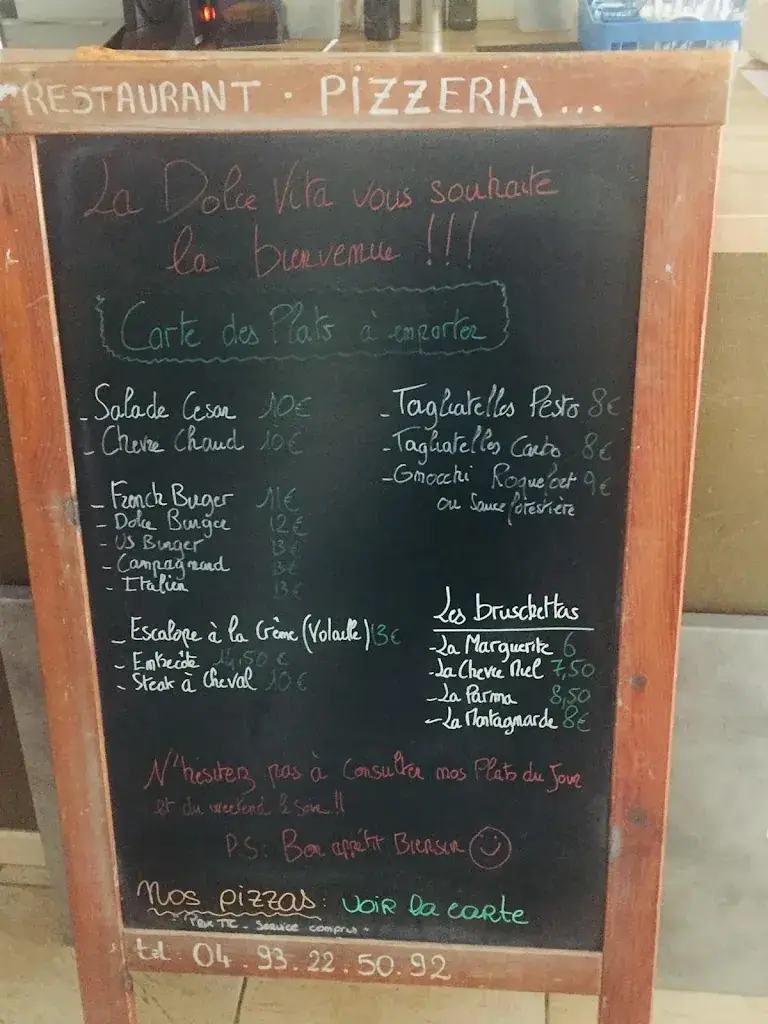 RESTAURANT · PIZZERIA...
La Dolce Vita vous souhaite
la bienvenue !!!
Carte des Plats à emporter
- Salade Cesar 10€
- Chevre Chaud 10€
- French Burger 11€
- Dolce Burger 12€
- US Burger 13€
- Campagnard 13€
- Italien 13€
- Escalope à la Crème (Volaille) 13€
- Entrecôte 14,50 €
- Steak à Cheval 10€
- Tagliatelles Pesto 8€
- Tagliatelles Carbo 8€
- Gnocchi Roquefort 9€
ou Sauce forestière
Les bruschettas
- La Marguerite 6
- La Chevre Miel 7,50
- La Parma 8,50
- La Montagnarde 8€
N'hésitez pas à consulter nos Plats du Jour
et du weekend & soir !!
P.S: Bon appétit Biensur
Nos pizzas: voir la carte
Prix TTC - Service compris -
tel. 04.93.22.50.92